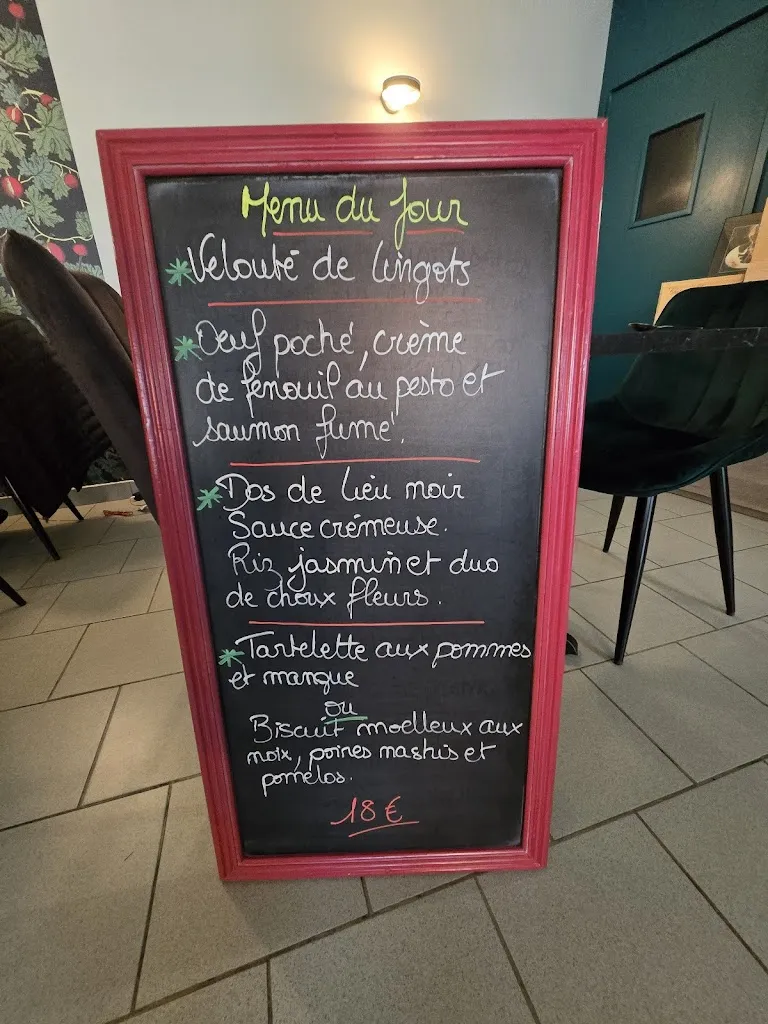 Menu du Jour
*Velouté de lingots
*Oeuf poché, crème
de fenouil au pesto et
saumon fumé.
*Dos de lieu noir
Sauce crémeuse.
Riz jasmin et duo
de choux fleurs.
*Tartelette aux pommes
et mangue
ou
Biscuit moelleux aux
noix, poires nashis et
pomelos.
18€